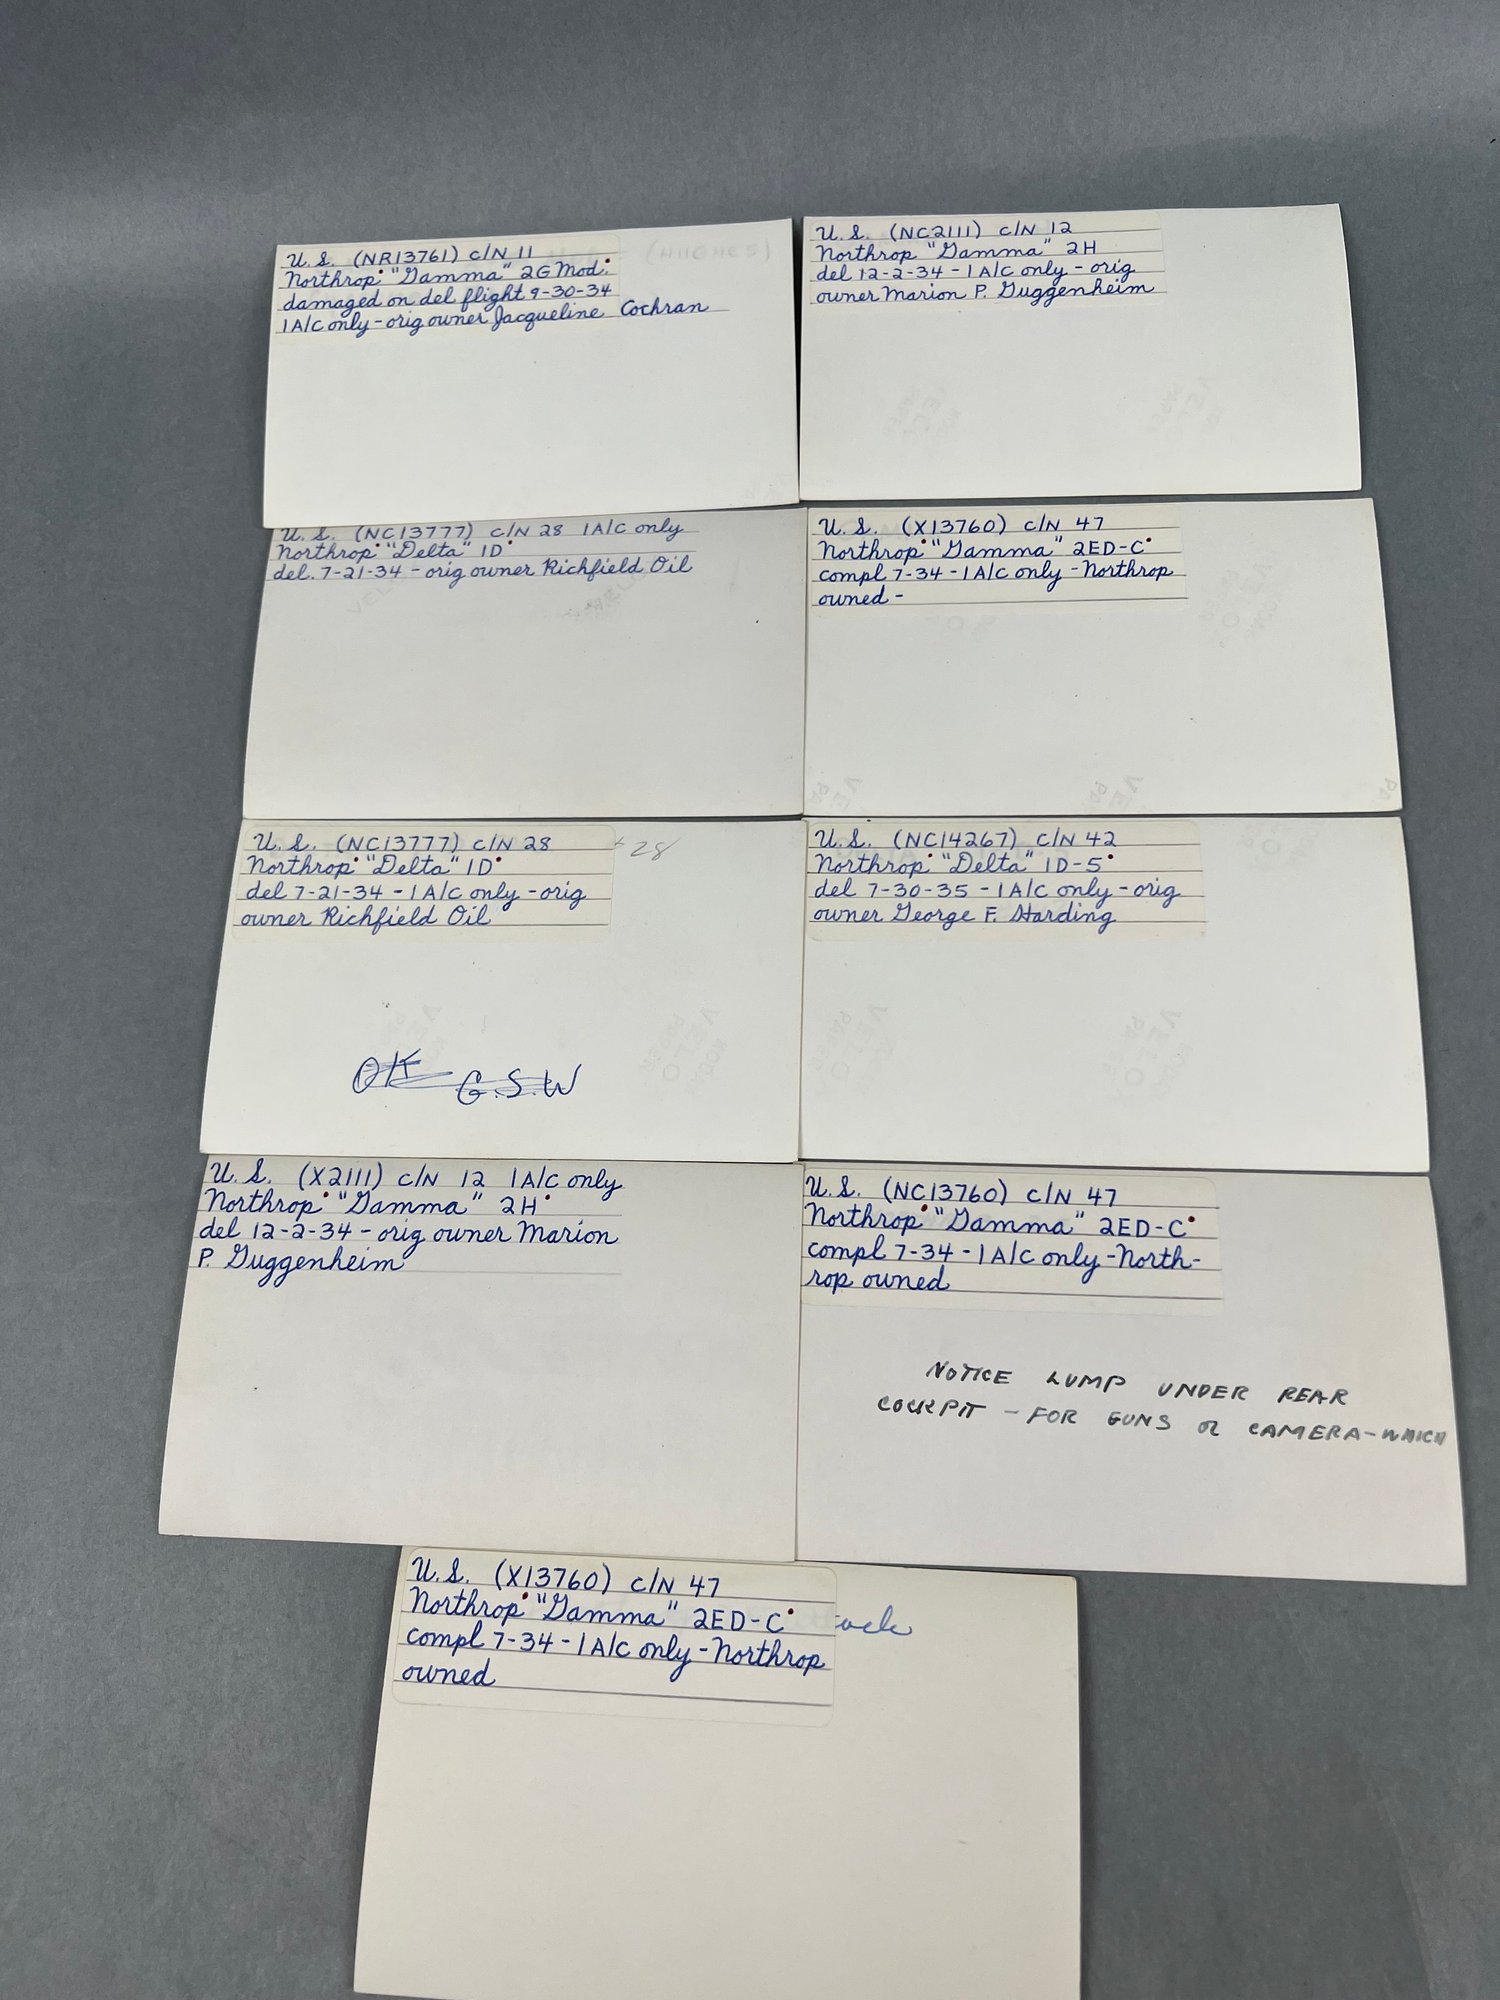 U.S. (NR13761) c/N 11
Northrop "Gamma" 2G Mod.
damaged on del flight 9-30-34
1 A/c only - orig owner Jacqueline Cochran
(HUGHES)
U.S. (NC2111) c/N 12
Northrop "Gamma" 2H
del 12-2-34 - 1 A/c only - orig
owner Marion P. Guggenheim
U.S. (NC13777) c/N 28 1 A/c only
Northrop "Delta" 1D
del. 7-21-34 - orig owner Richfield Oil
U.S. (X13760) c/N 47
Northrop "Gamma" 2ED-C
compl 7-34 - 1 A/c only - Northrop
owned -
U.S. (NC13777) c/N 28
28
Northrop "Delta" 1D
del 7-21-34 - 1 A/c only - orig
owner Richfield Oil
OK G.S.W
U.S. (NC14267) c/N 42
Northrop "Delta" 1D-5
del 7-30-35 - 1 A/c only - orig
owner George F. Harding
U.S. (X2111) c/N 12 1 A/c only
Northrop "Gamma" 2H
del 12-2-34 - orig owner Marion
P. Guggenheim
U.S. (NC13760) c/N 47
Northrop "Gamma" 2ED-C
compl 7-34 - 1 A/c only - North-
rop owned
NOTICE LUMP UNDER REAR
COCKPIT - FOR GUNS OR CAMERA - WHICH
U.S. (X13760) c/N 47
Northrop "Gamma" 2ED-C
compl 7-34 - 1 A/c only - Northrop
owned